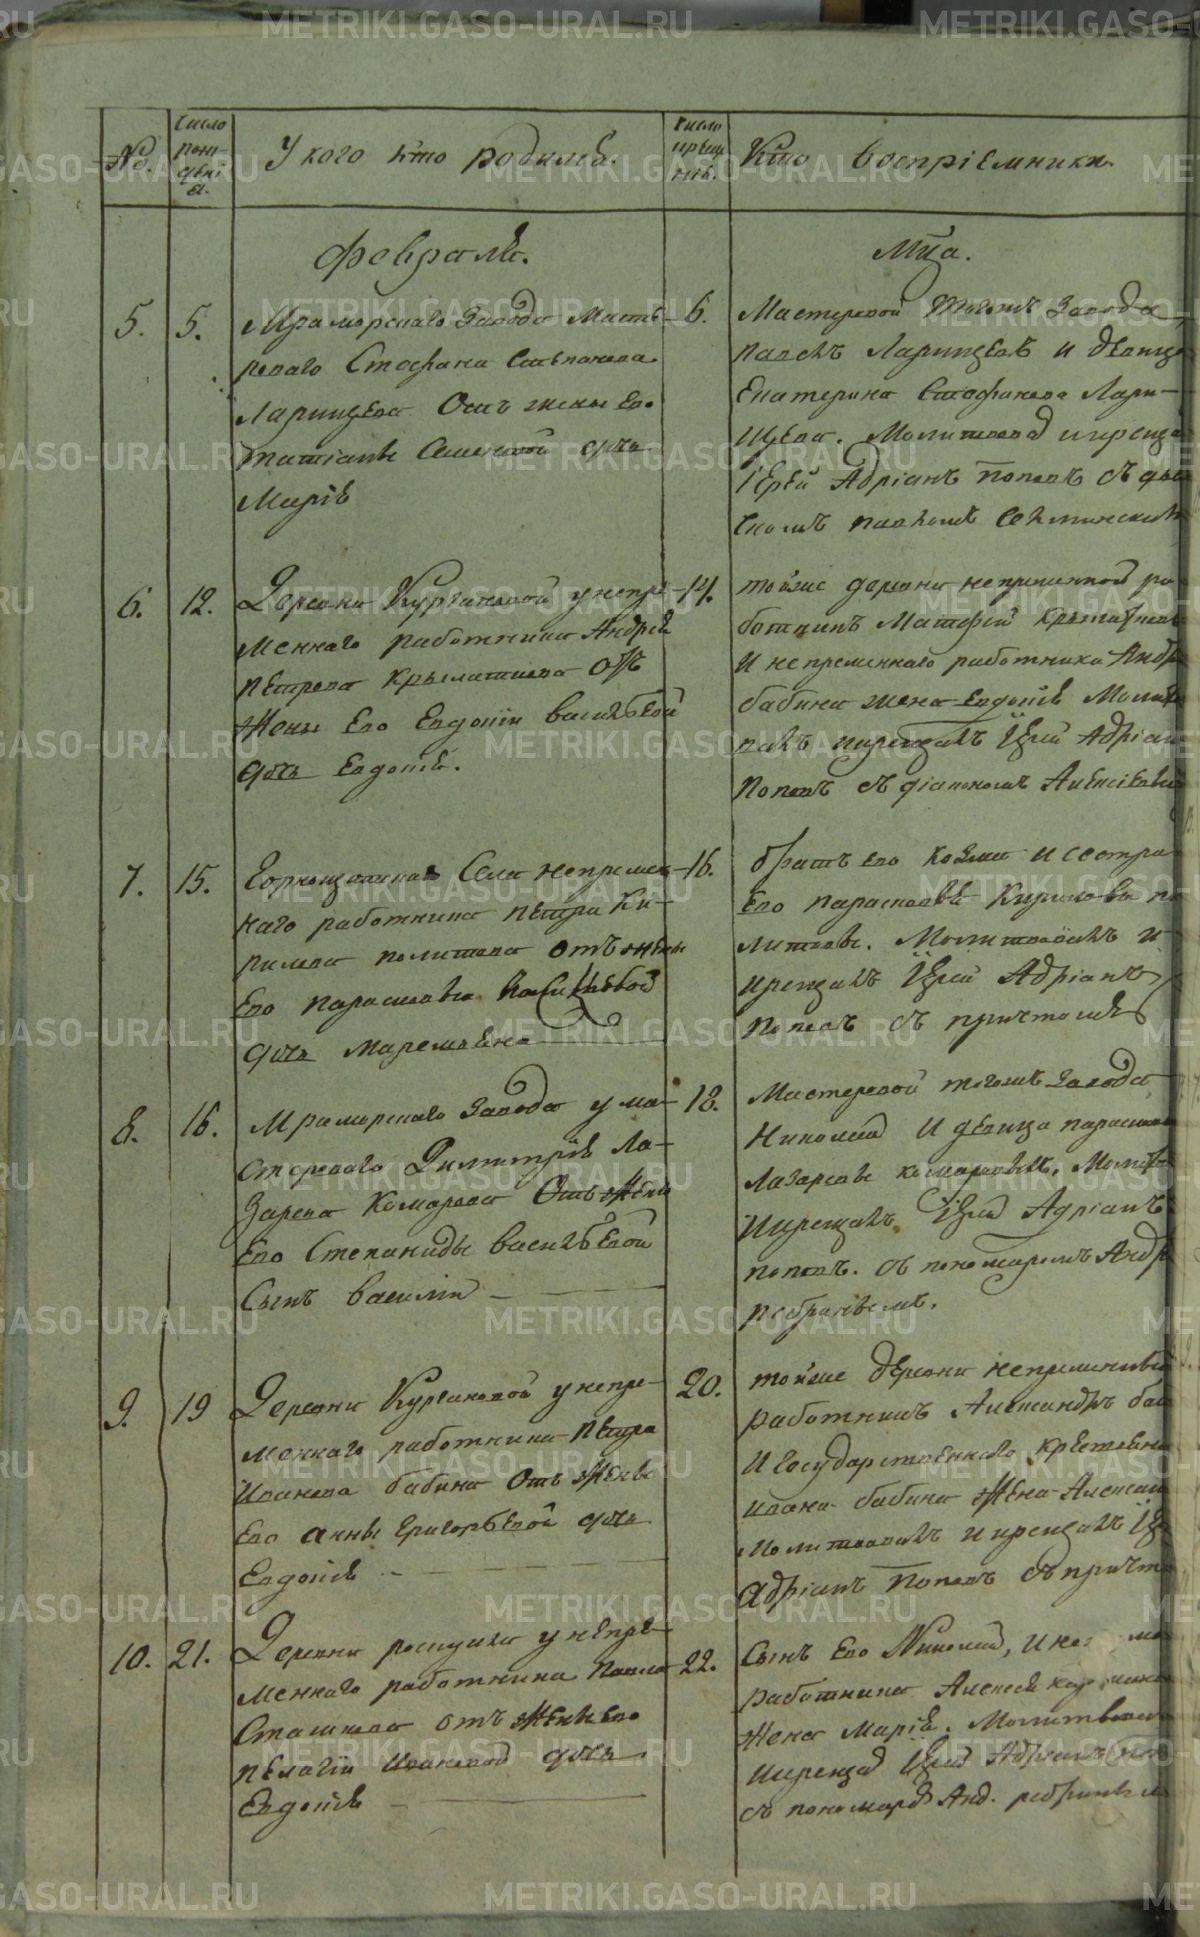 №
Число рожденiя.
У кого кто родился.
Число крещенiя.
Кто воспрiемники.
Февраля.
Мца.
5.
5.
Мраморскаго Завода Масте-
роваго Стефана Степанова
Ларинцева Отъ жены Его
татiаны Семеновой дочь
Марiя
6.
Мастеровой тогожъ Завода
Ларинцевъ и девица
Екатерина Стефанова Лари-
нцева. Молитвовал и крещал
Iерей Адрiанъ Поповъ съ дья
6.
12.
Деревни Кургановой у непре-
меннаго работника Андрея
Петрова Крылаткова отъ
Жены Его Евдокiи васильевой
дочь Евдокiя.
14.
тойже деревни непременной ра
ботникъ Матфей
И непременнаго работника Андр
бабина жена Евдокiя Молитв
валъ икрещалъ Iерей Адрiан
Поповъ съ дiакономъ Алексiев
7.
15.
Горнощитскаго Села непремен-
наго работника Петра Ки-
рилова политова отъ жены
Его парасковьи Васильевой
дочь Маремьяна
16.
братъ его Козма и сестра
Его парасковья Кирилова по
литовы. Молитвовалъ и
крещалъ Iерей Адрiанъ
Поповъ съ причтомъ
8.
16.
Мраморскаго Завода у ма-
стероваго Димитрiя Ла-
зарева Комарова Отъ Жены
Его Степаниды васильевой
Сынъ василiй
18.
Мастеровой тогожъ Завода
Николай И девица парасков
Лазаревы комаровы. Молитв
Икрещалъ Iерей Адрiанъ
поповъ. съ пономаремъ Андр
9.
19
Деревни Кургановой у непре-
меннаго работника Петра
Иванова бабина Отъ Жены
Его анны Григорьевой дочь
Евдокiя
20.
тойже деревни непременный
работникъ Александръ баб
И государственнаго крестьяна
ивана бабина Жена Алексан
Молитвовалъ и крещалъ Iе
Адрiанъ Поповъ съ причто
10.
21.
Деревни роскуиха у непре-
меннаго работника Павла
Сташкова отъ Жены Его
Пелагiи Ивановой дочь
Евдокiя
22.
Сынъ Его Николай,
работника Алексея
Жена Марiя. Молитвовал
икрещал Iерей Адрiанъ поп
съ пономаръ Анд.
METRIKI.GASO-URAL.RU